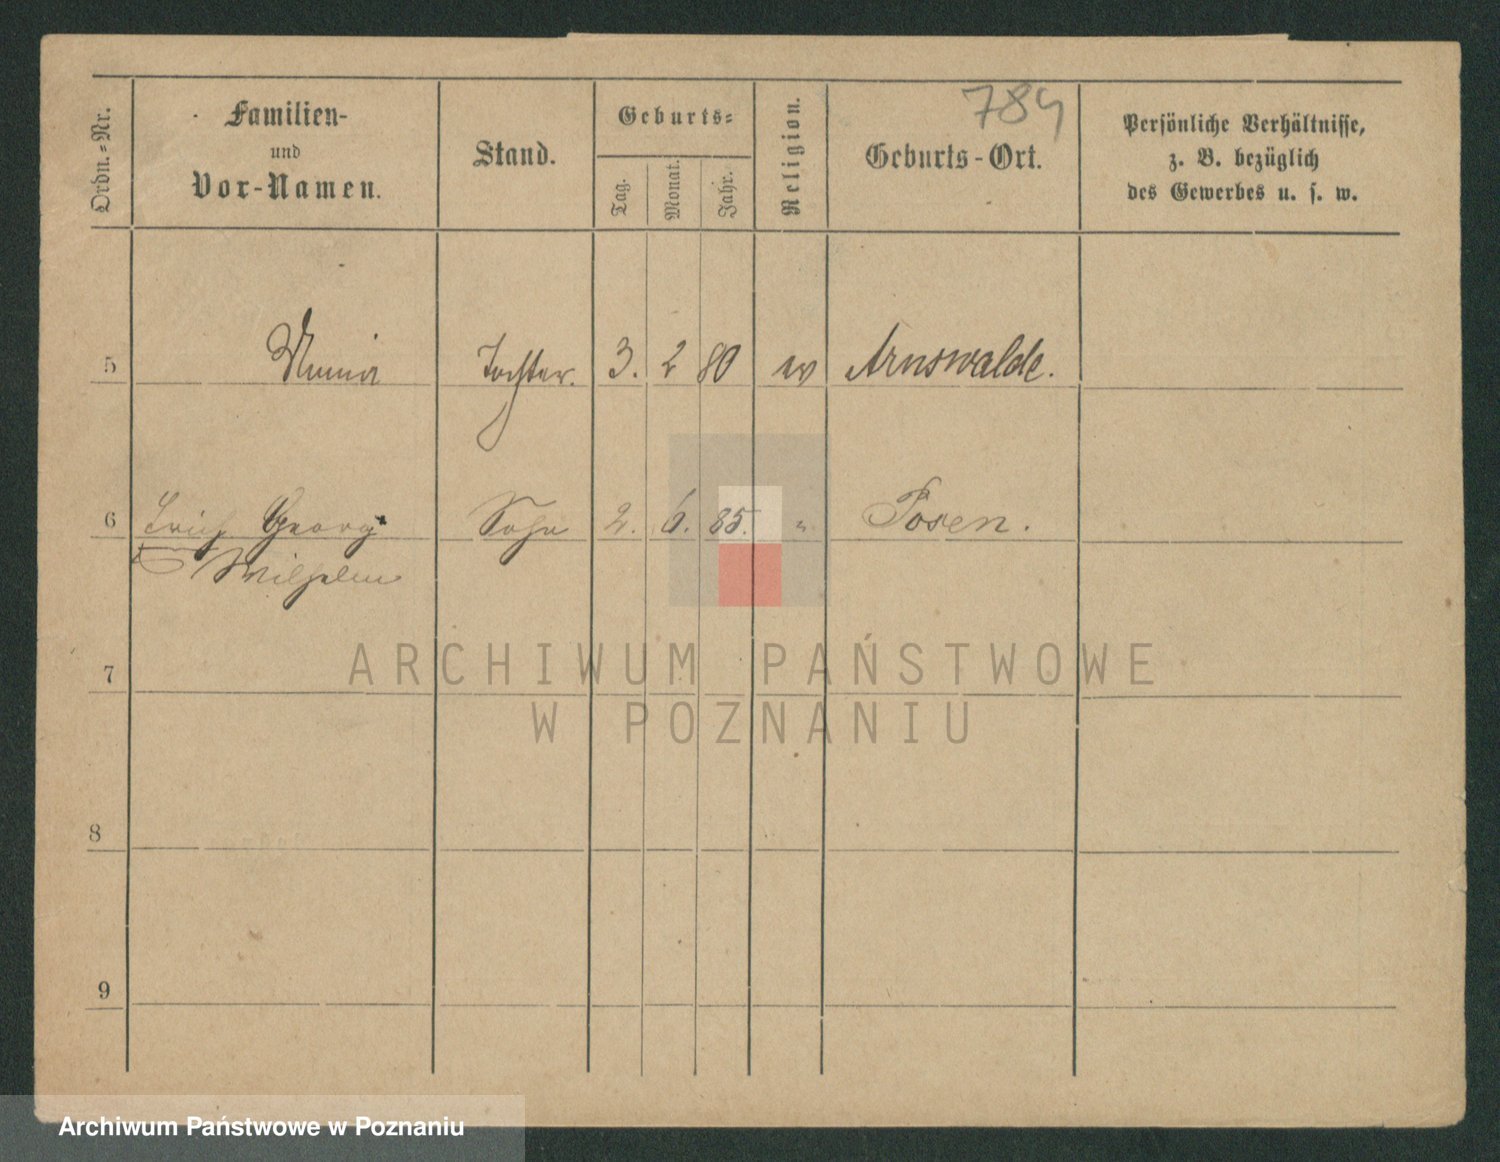 789
Ordn.-Nr.
Familien-
und
Vor-Namen.
Stand.
Geburts-
Tag.
Monat.
Jahr.
Religion.
Geburts-Ort.
Persönliche Verhältnisse,
z. B. bezüglich
des Gewerbes u. s. w.
5 Tochter. 3. 2 80 Arnswalde.
6 Erich Georg Sohn 2. 6. 85. " Posen.
Wilhelm
7
ARCHIWUM PAŃSTWOWE
W POZNANIU
8
9
Archiwum Państwowe w Poznaniu